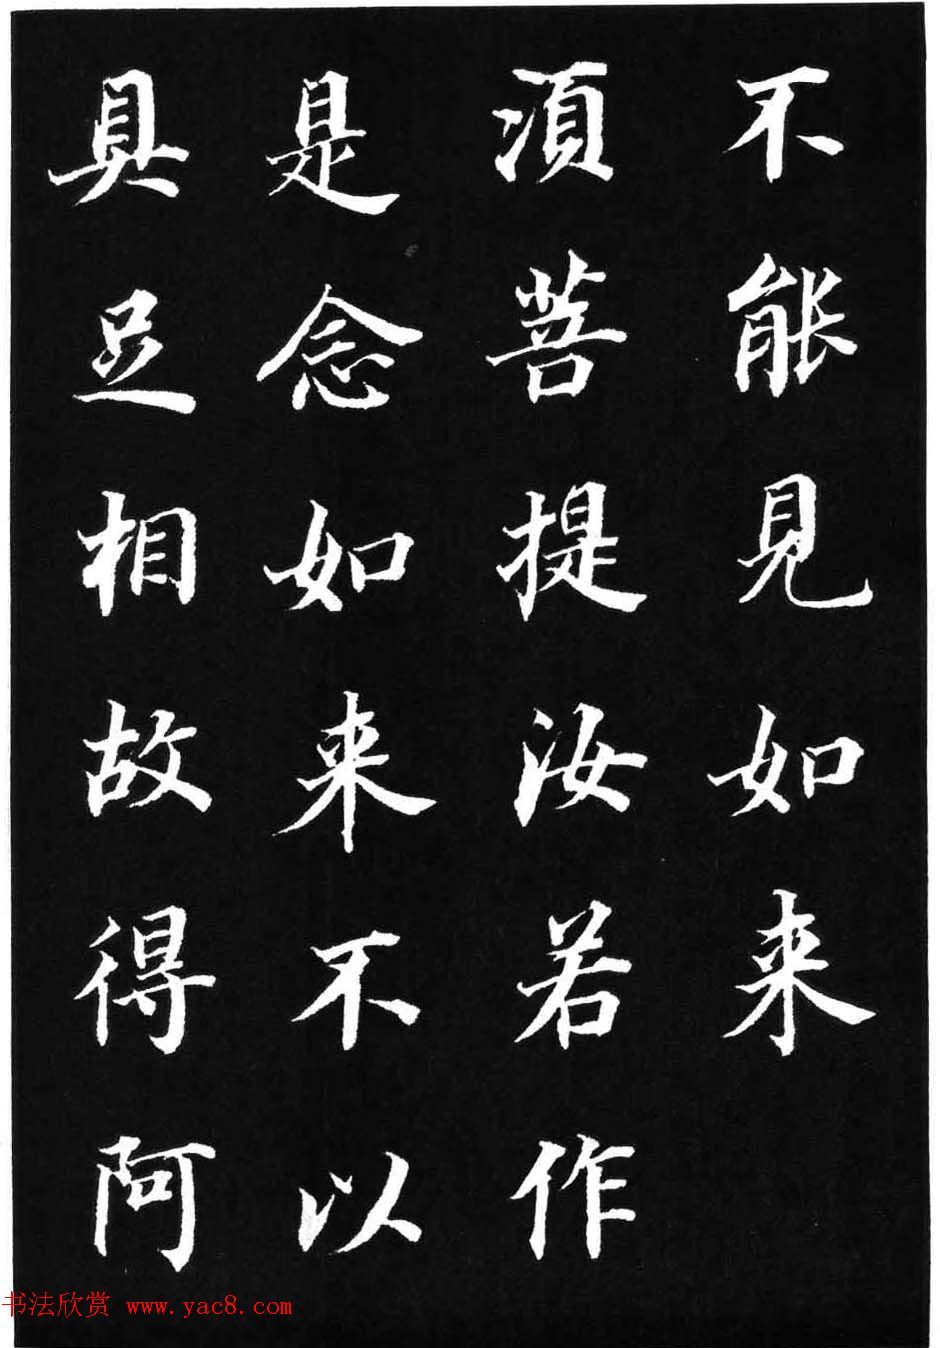 不能見如来
湏菩提汝若作
是念如来不以
具足相故得阿
书法欣赏 www.yac8.com